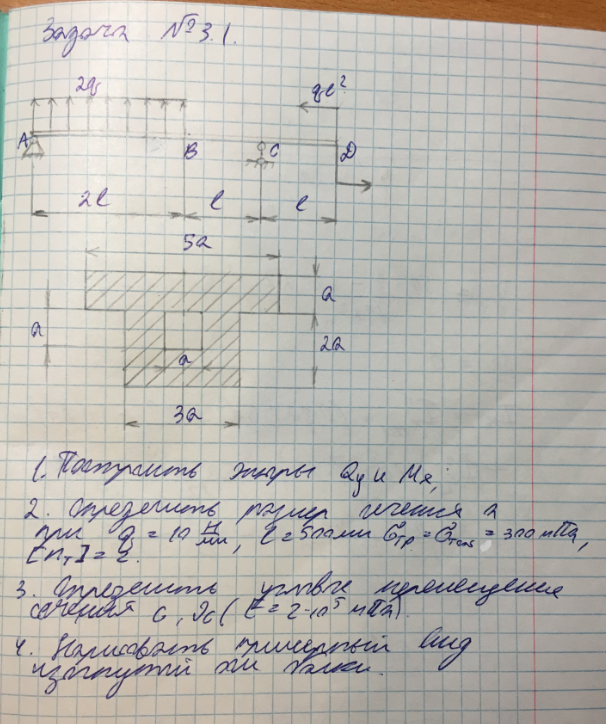 Задача №3.1.
2q
qe²
A
B
C
D
2l
l
l
5a
a
a
a
2a
3a
1. Построить эпюры Qy и Mx;
2. Определить размер сечения a
при q = 10 Н/мм, l = 500мм σтр = σтсж = 300 мПа,
[nт] = 2.
3. Определить угловые перемещения
сечения C, ϑc ( E = 2·10⁵ мПа).
4. Нарисовать примерный вид
изогнутой оси балки.